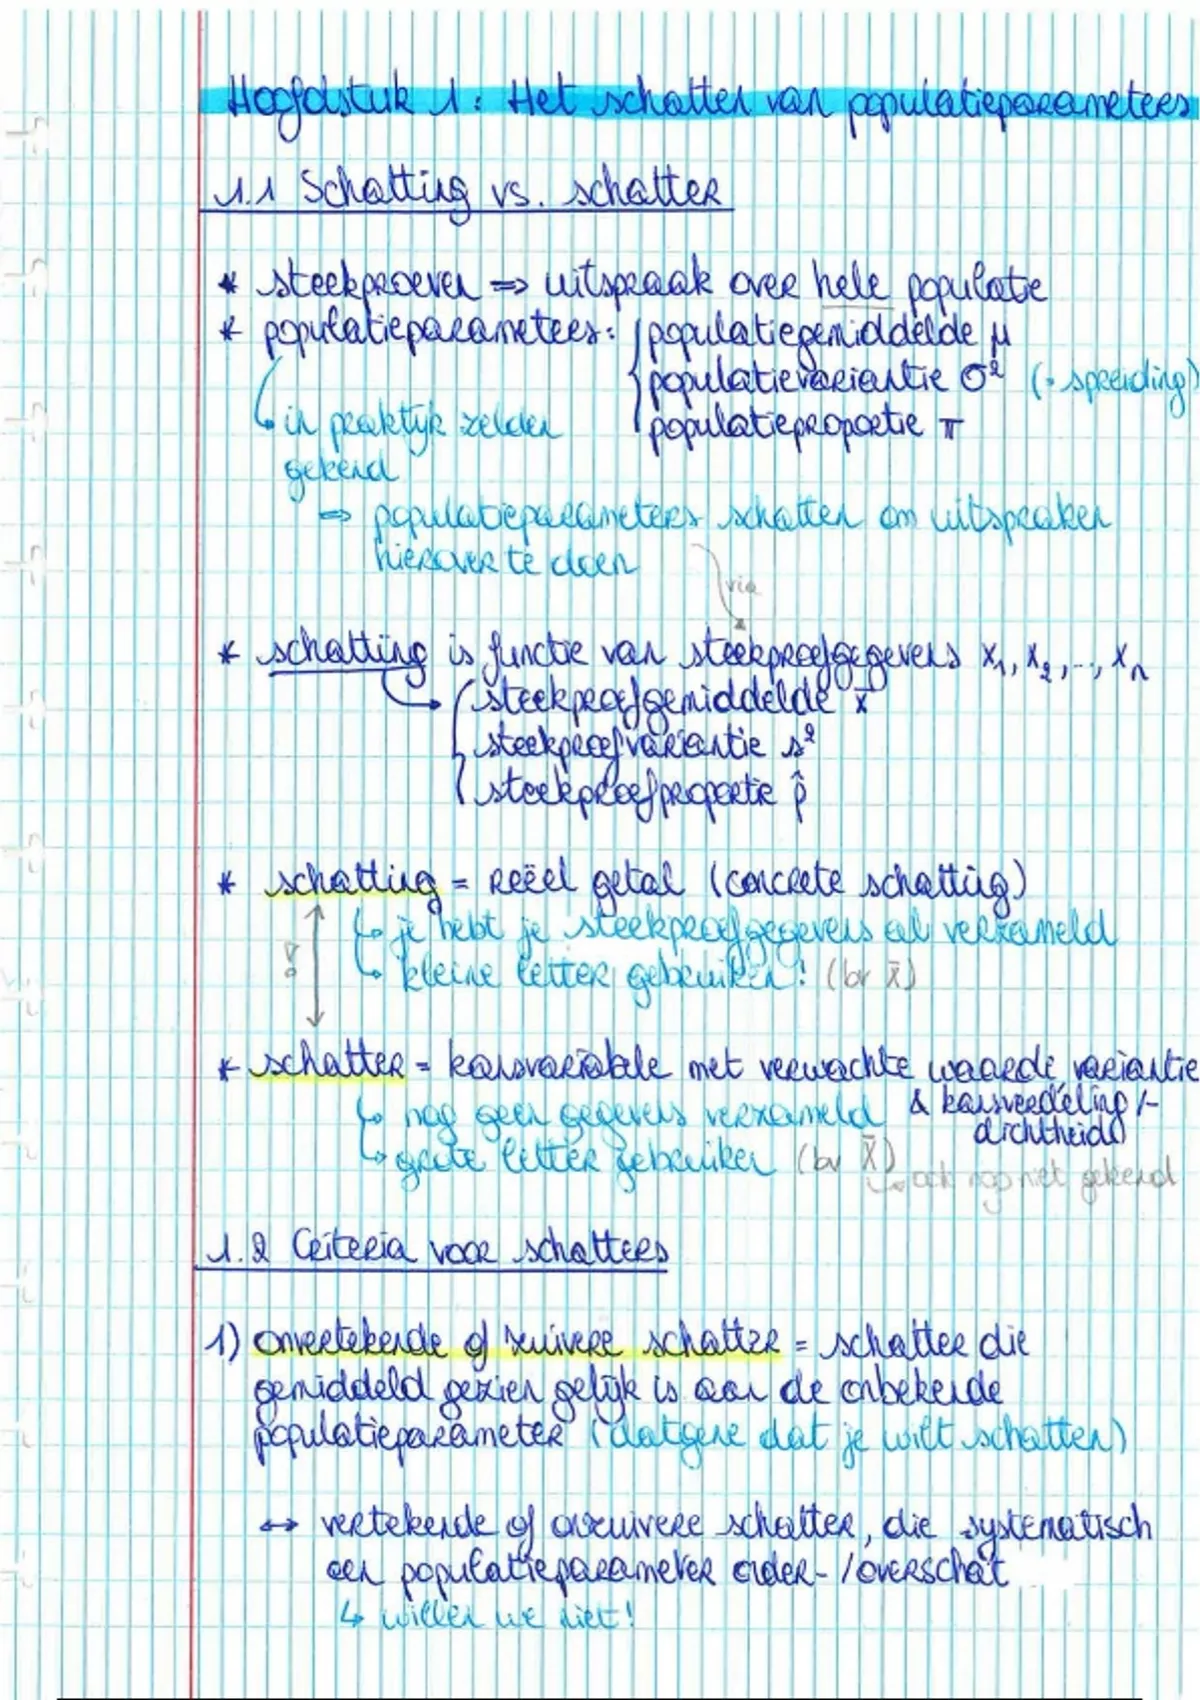 Hoofdstuk 1: Het schatten van populatieparameters
1.1 Schatting vs. schatter
* steekproeven => uitspraak over hele populatie
* populatieparameters: { populatiegemiddelde μ
populatievariantie σ² (~ spreiding)
populatieproportie π
↳ in praktijk zelden
gekend
=> populatieparameters schatten om uitspraken
hierover te doen
via
* schatting is functie van steekproefgegevens x₁, x₂, ..., xₙ
↳ { steekproefgemiddelde x̄
steekproefvariantie s²
steekproefproportie p̂
* schatting = reëel getal (concrete schatting)
↳ je hebt je steekproefgegevens al verzameld
↳ kleine letter gebruiken! (bv x̄)
* schatter = kansvariabele met verwachte waarde, variantie
& kansverdeling/-
dichtheid
↳ nog geen gegevens verzameld
↳ grote letter gebruiken (bv X̄)
↳ ook nog niet gekend
1.2 Criteria voor schatters
1) onvertekende of zuivere schatter = schatter die
gemiddeld gezien gelijk is aan de onbekende
populatieparameter (datgene dat je wilt schatten)
↔ vertekende of onzuivere schatter, die systematisch
een populatieparameter onder-/overschat
↳ willen we niet!